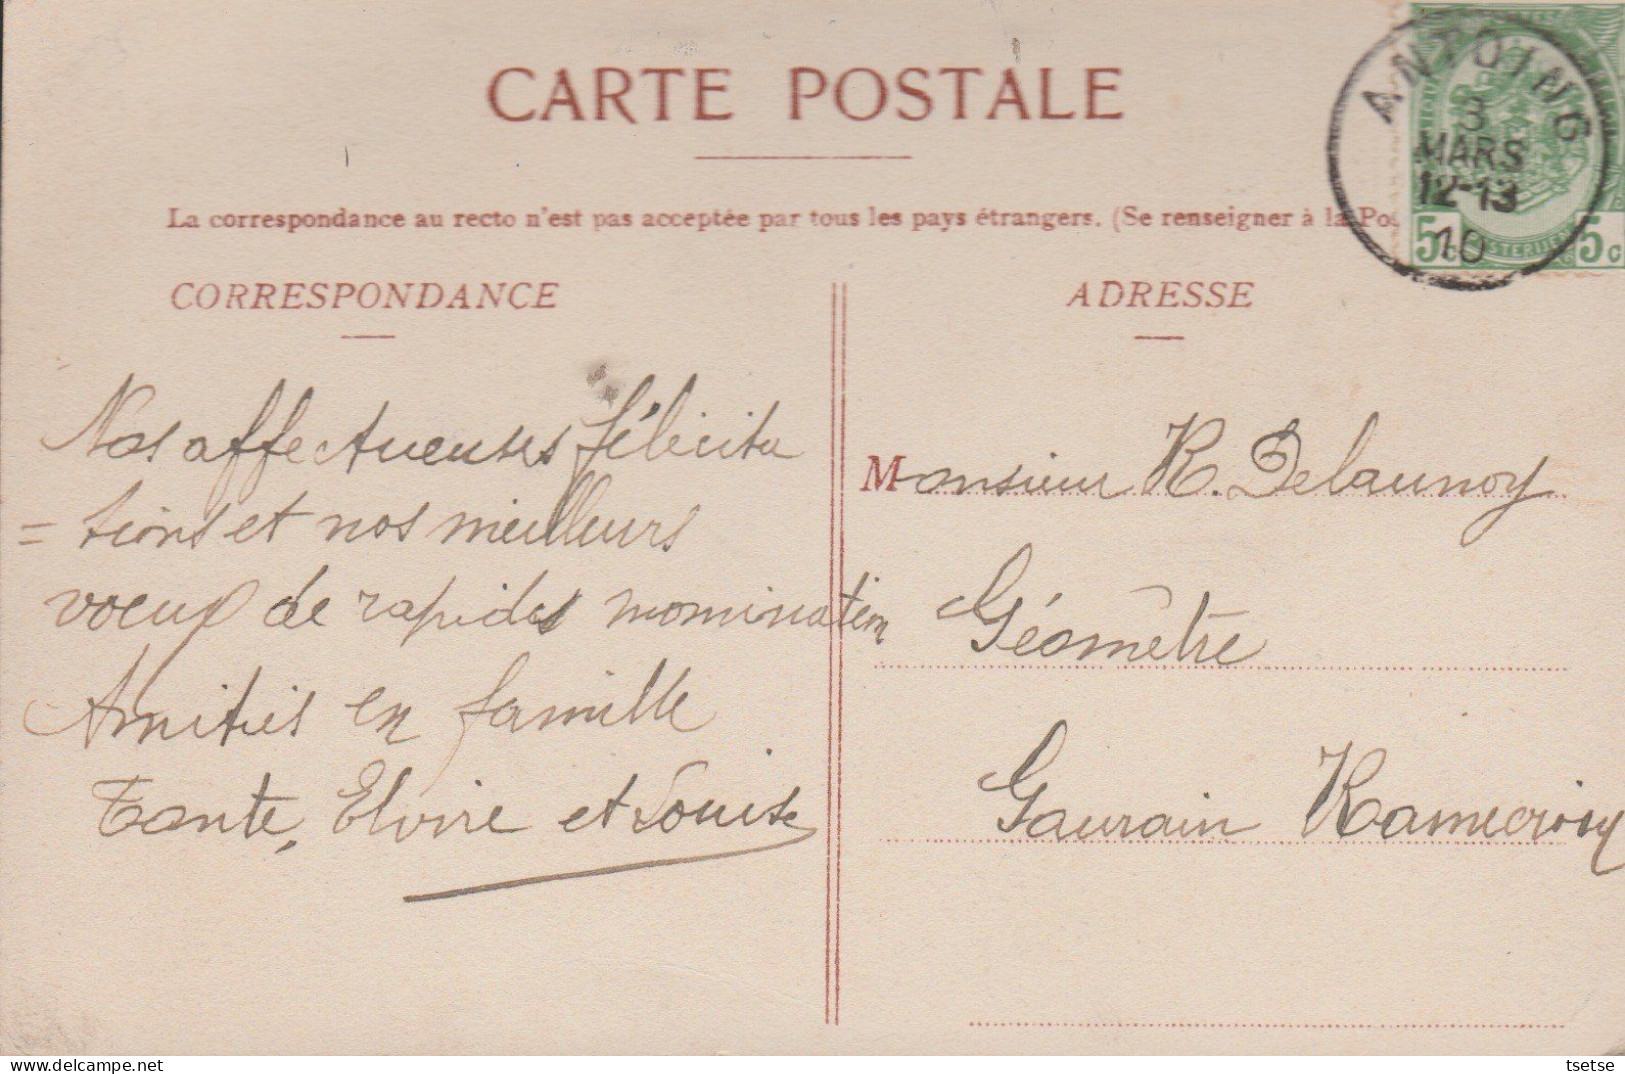 CARTE POSTALE
La correspondance au recto n'est pas acceptée par tous les pays étrangers. (Se renseigner à la Pos
ANTOING
3
MARS
12-13
10
5c 5c
CORRESPONDANCE
Nos affectueuses félicita
= tions et nos meilleurs
voeux de rapides nomination
Amitiés en famille
Tante, Elvire et Louise
ADRESSE
Monsieur R. Delaunoy
Géomètre
Gaurain Ramecroix
tsetse